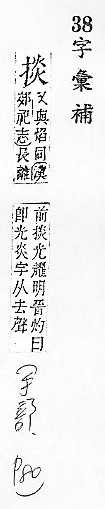 38 字彙補
掞
又與焰同漢
郊祀志長離
前掞光耀明晉灼曰
即光炎字从去聲
(手部, P80)